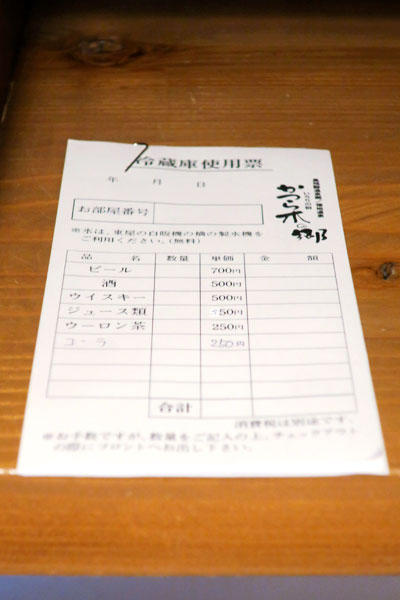 冷蔵庫使用票
年 月 日
お部屋番号
※氷は、東屋の自販機の横の製氷機を
ご利用ください。(無料)
品 名 数量 単価 金 額
ビール 700円
酒 500円
ウイスキー 500円
ジュース類 50円
ウーロン茶 250円
コーラ 250円
合計
消費税は別途です。
※お手数ですが、数量をご記入の上、チェックアウト
の際にフロントへお出し下さい。